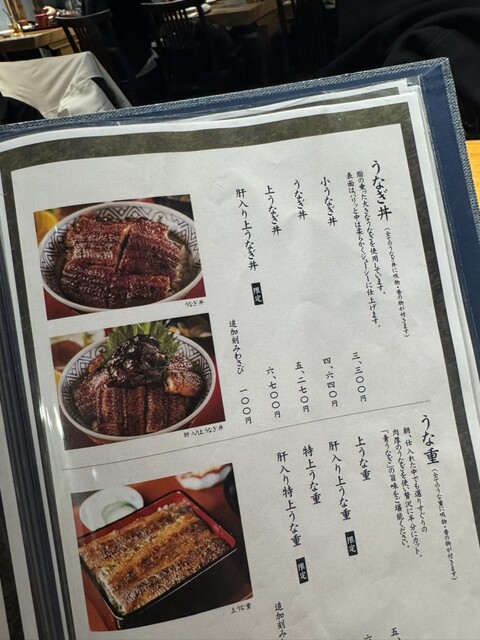 うなぎ丼（全てのうなぎ丼に吸物・香の物が付きます）
脂の乗った大きなうなぎを使用しています。
表面はパリッと中は柔らかくジューシーに仕上げます。
小うなぎ丼 三、三〇〇円
うなぎ丼 四、六四〇円
上うなぎ丼 五、二七〇円
肝入り上うなぎ丼 限定 六、七〇〇円
追加刻みわさび 一〇〇円
うなぎ丼
肝入り上うなぎ丼
うな重（全てのうな重に吸物・香の物が付きます）
朝、仕入れた中でも選りすぐりの
肉厚のうなぎを使い贅沢に半分にカット。
「青うなぎ」の旨味をご堪能ください。
上うな重 五、
肝入り上うな重 限定
特上うな重
肝入り特上うな重 限定
追加刻み
上うな重